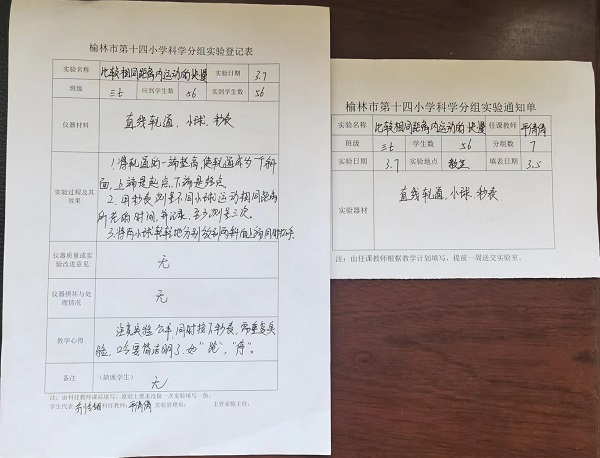 榆林市第十四小学科学分组实验登记表
实验名称 比较相同距离内运动的快慢 实验日期 3.7
班级 三七 应到学生数 56 实到学生数 56
仪器材料 直线轨道,小球,秒表
实验过程及其效果
1.将轨道的一端垫高,使轨道成为一个斜
面,上端是起点,下端是终点
2.用秒表测量不同小球运动相同距离
所花的时间,并记录,至少测量三次.
3.将两小球轻轻地分别放到两斜面上端同时松手
仪器质量或实验改进意见 无
仪器损坏与处理情况 无
教学心得
注意实验公平,同时按下秒表,需重复实
验,口令要简洁明了,如"跑","停"。
备注 (缺席学生)
无
注:由科任教师课后填写,原则上要求没做一次实验填写一份。
学生代表: 科任教师: 实验管理员: 主管实验主任:
榆林市第十四小学科学分组实验通知单
实验名称 比较相同距离内运动的快慢 任课教师
班级 三七 学生数 56 分组数 7
实验日期 3.7 实验地点 教室 填表日期 3.5
实验器材 直线轨道,小球,秒表
注:由任课教师根据教学计划填写,提前一周送交实验室。